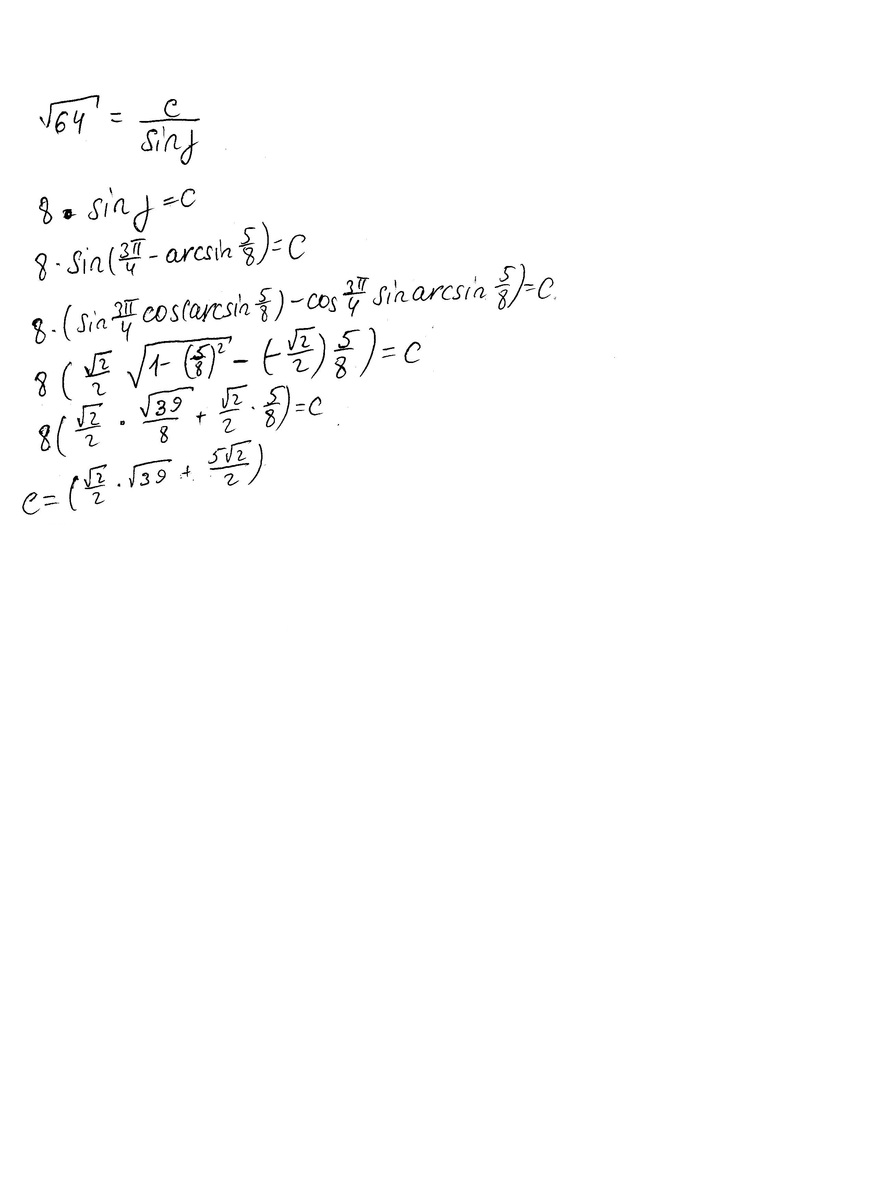 √64 = c/sin γ
8 · sin γ = c
8 · sin(3π/4 - arcsin 5/8) = c
8 · (sin 3π/4 cos(arcsin 5/8) - cos 3π/4 sin arcsin 5/8) = c.
8 (√2/2 √(1 - (5/8)²) - (-√2/2) 5/8) = c
8(√2/2 · √39/8 + √2/2 · 5/8) = c
c = (√2/2 · √39 + 5√2/2)